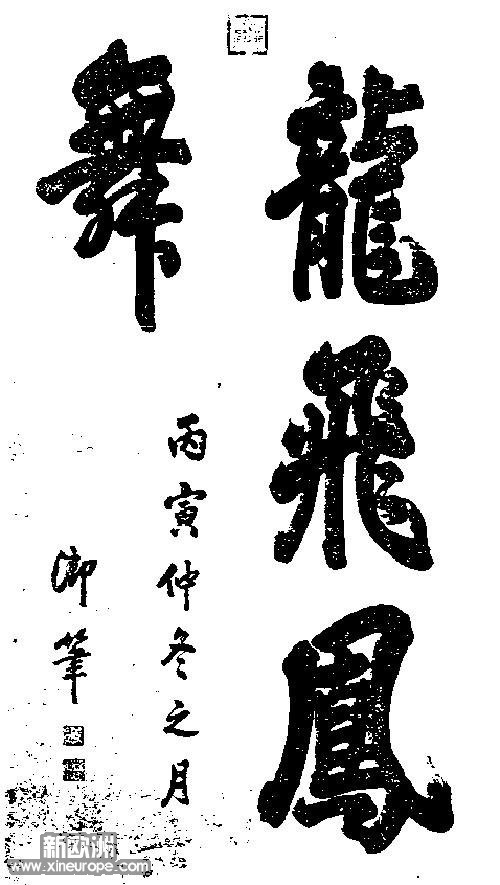 龍飛鳳
舞
丙寅仲冬之月
御筆
新欧洲
www.xineurope.com